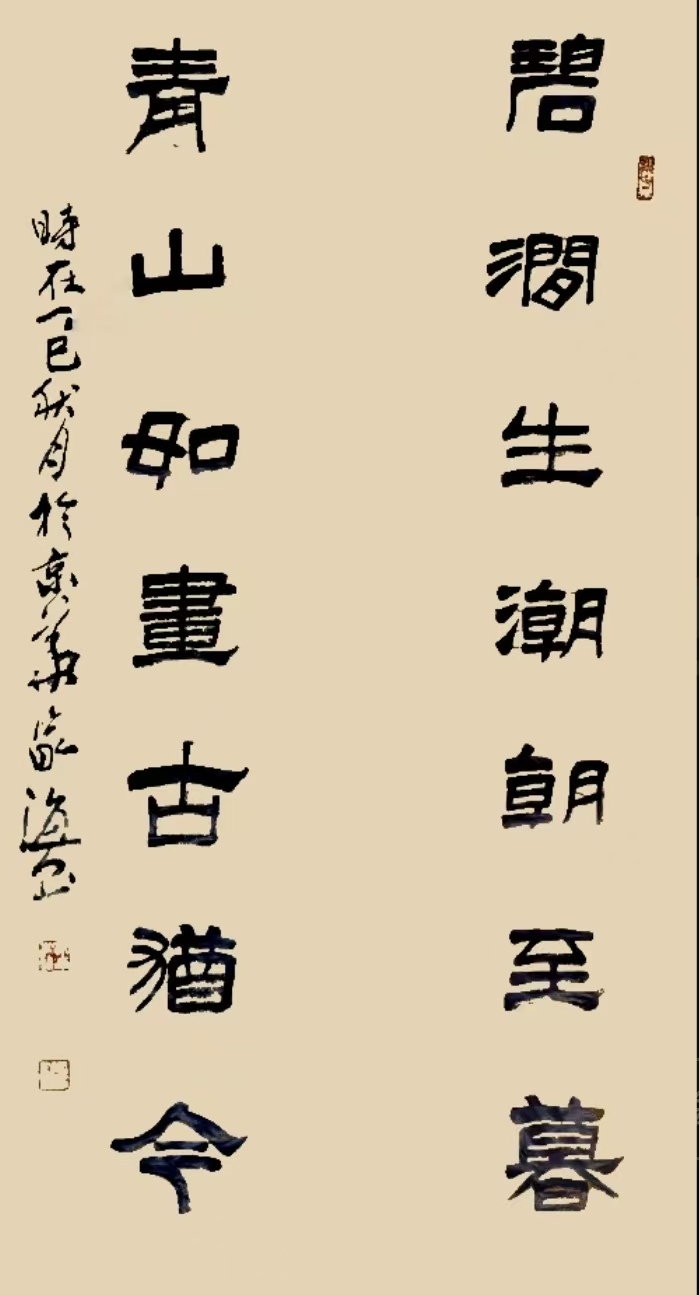 碧澗生潮朝至暮
青山如畫古猶今
時在丁巳秋月於京華